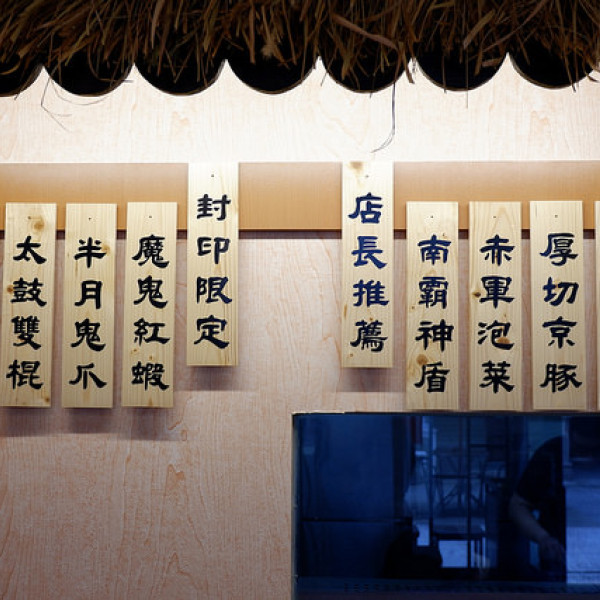 厚切京豚
赤軍泡菜
南霸神盾
店長推薦
封印限定
魔鬼紅蝦
半月鬼爪
太鼓雙棍